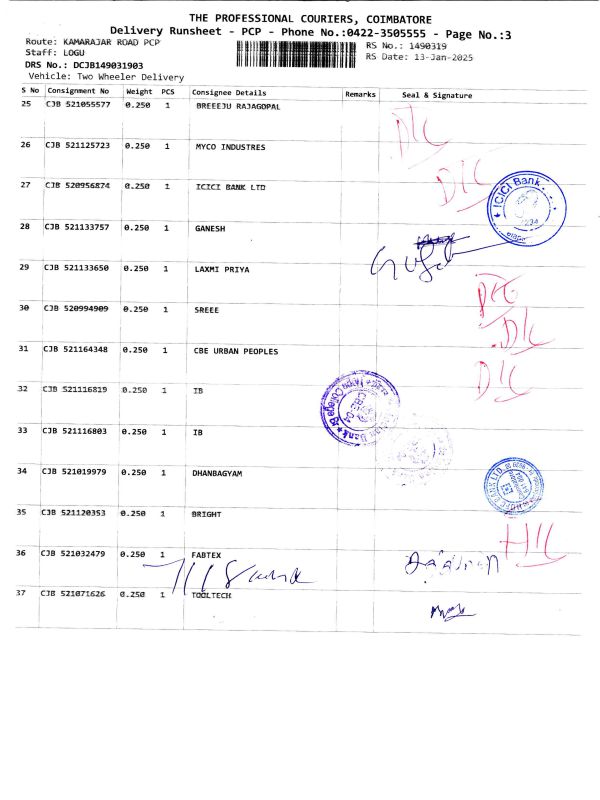 THE PROFESSIONAL COURIERS, COIMBATORE
Delivery Runsheet - PCP - Phone No.:0422-3505555 - Page No.:3
Route: KAMARAJAR ROAD PCP
RS No.: 1490319
Staff: LOGU
RS Date: 13-Jan-2025
DRS No.: DCJB149031903
Vehicle: Two Wheeler Delivery
S No Consignment No Weight PCS Consignee Details Remarks Seal & Signature
25 CJB 521055577 0.250 1 BREEEJU RAJAGOPAL
D/C
26 CJB 521125723 0.250 1 MYCO INDUSTRES
D/C
27 CJB 520956874 0.250 1 ICICI BANK LTD
ICICI Bank
28 CJB 521133757 0.250 1 GANESH
29 CJB 521133650 0.250 1 LAXMI PRIYA
D/C
30 CJB 520994909 0.250 1 SREEE
D/C
31 CJB 521164348 0.250 1 CBE URBAN PEOPLES
D/C
32 CJB 521116819 0.250 1 IB
33 CJB 521116803 0.250 1 IB
34 CJB 521019979 0.250 1 DHANBAGYAM
35 CJB 521120353 0.250 1 BRIGHT
36 CJB 521032479 0.250 1 FABTEX
37 CJB 521071626 0.250 1 TOOLTECH